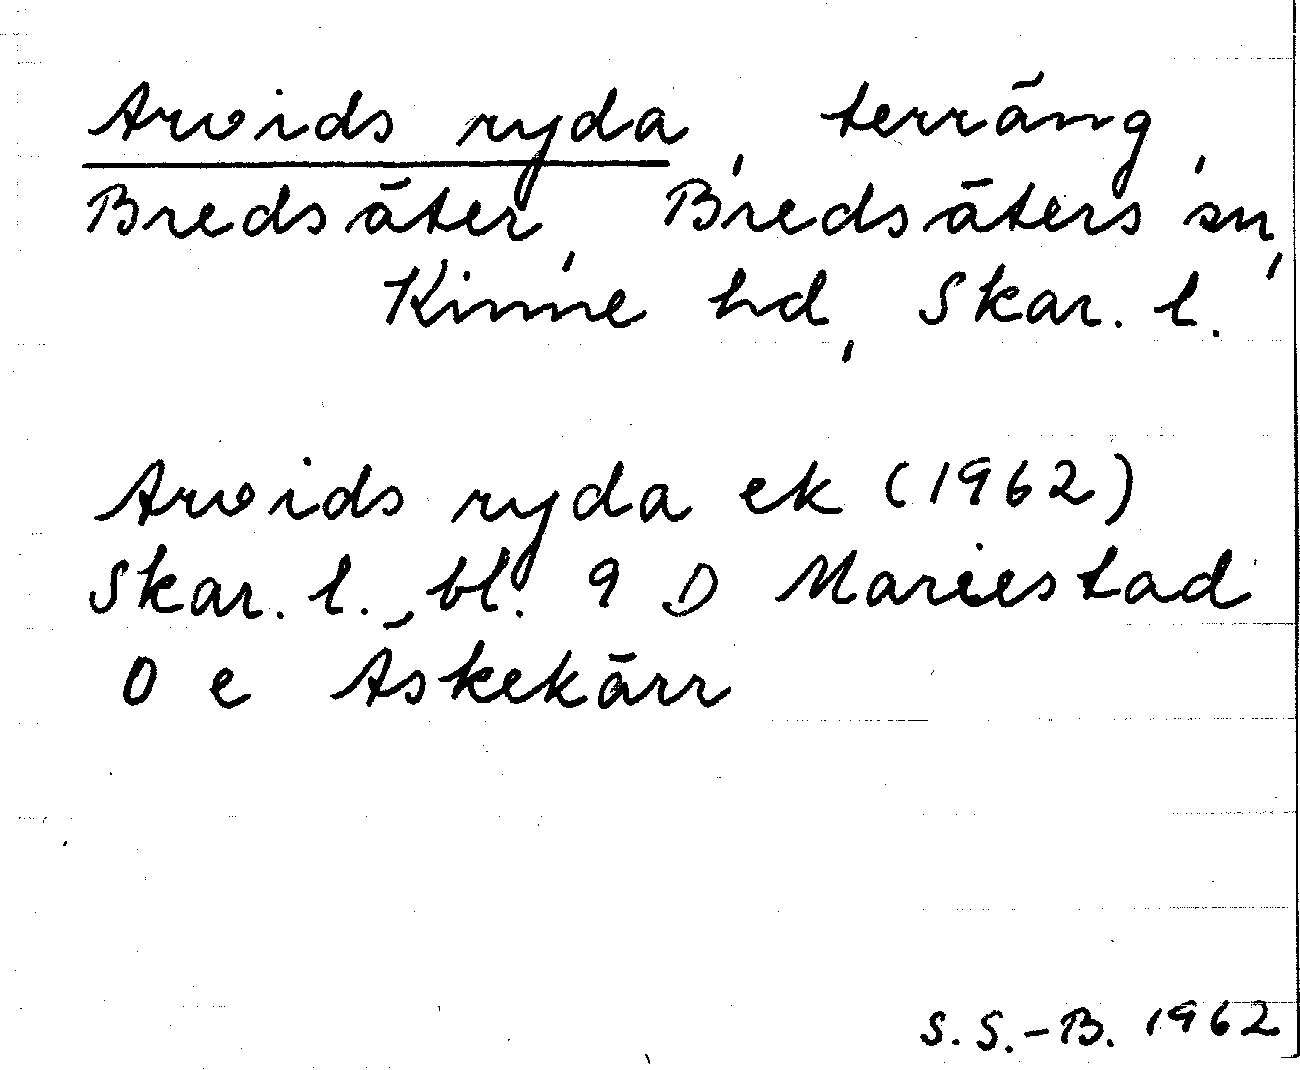 Arvids ryda, terräng,
Bredsäter, Bredsäters sn,
Kinne hd, Skar. l.
Arvids ryda ek (1962)
Skar. l., bl. 9 D Mariestad
0 e Äskekärr
S. S.-B. 1962